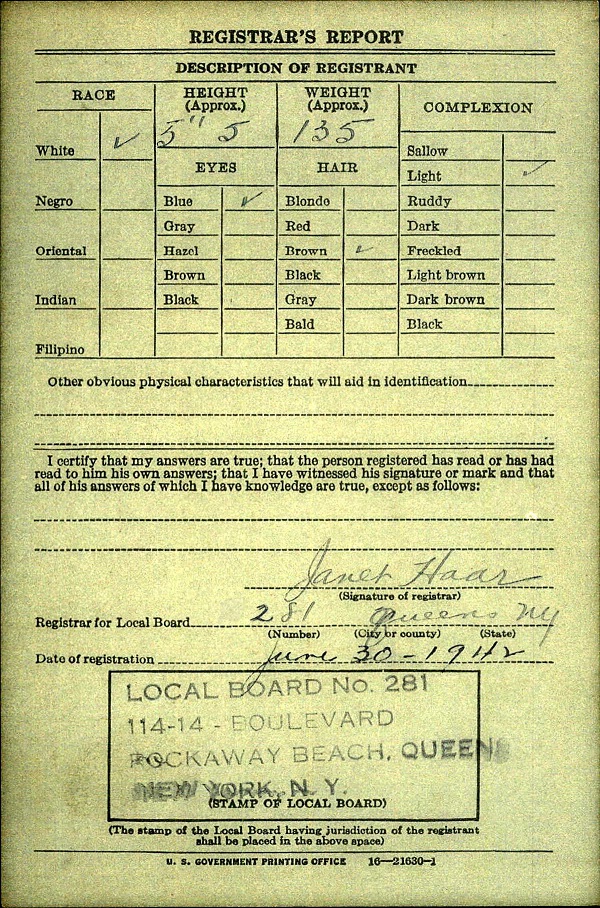 REGISTRAR'S REPORT
DESCRIPTION OF REGISTRANT
RACE
HEIGHT (Approx.)
WEIGHT (Approx.)
COMPLEXION
5" 5
135
White ✓
EYES
HAIR
Sallow
Light ✓
Negro
Blue ✓
Blonde
Ruddy
Gray
Red
Dark
Oriental
Hazel
Brown ✓
Freckled
Brown
Black
Light brown
Indian
Black
Gray
Dark brown
Bald
Black
Filipino
Other obvious physical characteristics that will aid in identification
I certify that my answers are true; that the person registered has read or has had
read to him his own answers; that I have witnessed his signature or mark and that
all of his answers of which I have knowledge are true, except as follows:
Janet Haar
(Signature of registrar)
Registrar for Local Board 281 Queens NY
(Number) (City or county) (State)
Date of registration June 30-1942
LOCAL BOARD No. 281
114-14 - BOULEVARD
ROCKAWAY BEACH, QUEENS
NEW YORK, N. Y.
(STAMP OF LOCAL BOARD)
(The stamp of the Local Board having jurisdiction of the registrant
shall be placed in the above space)
U. S. GOVERNMENT PRINTING OFFICE 16—21630-1